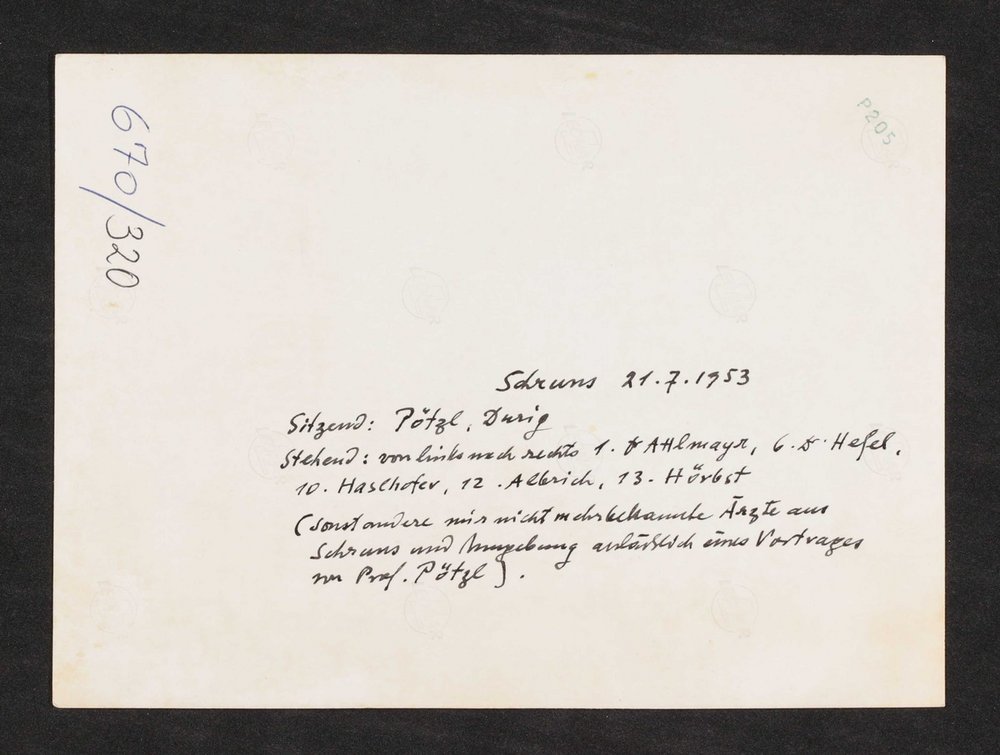 670/320
P205
Schruns 21.7.1953
Sitzend: Pötzl, Durig
Stehend: von links nach rechts 1. Dr Attlmayr, 6. Dr. Hefel,
10. Haslhofer, 12. Albrich, 13. Hörbst
(sonst andere mir nicht mehr bekannte Ärzte aus
Schruns und Umgebung anlässlich eines Vortrages
von Prof. Pötzl).